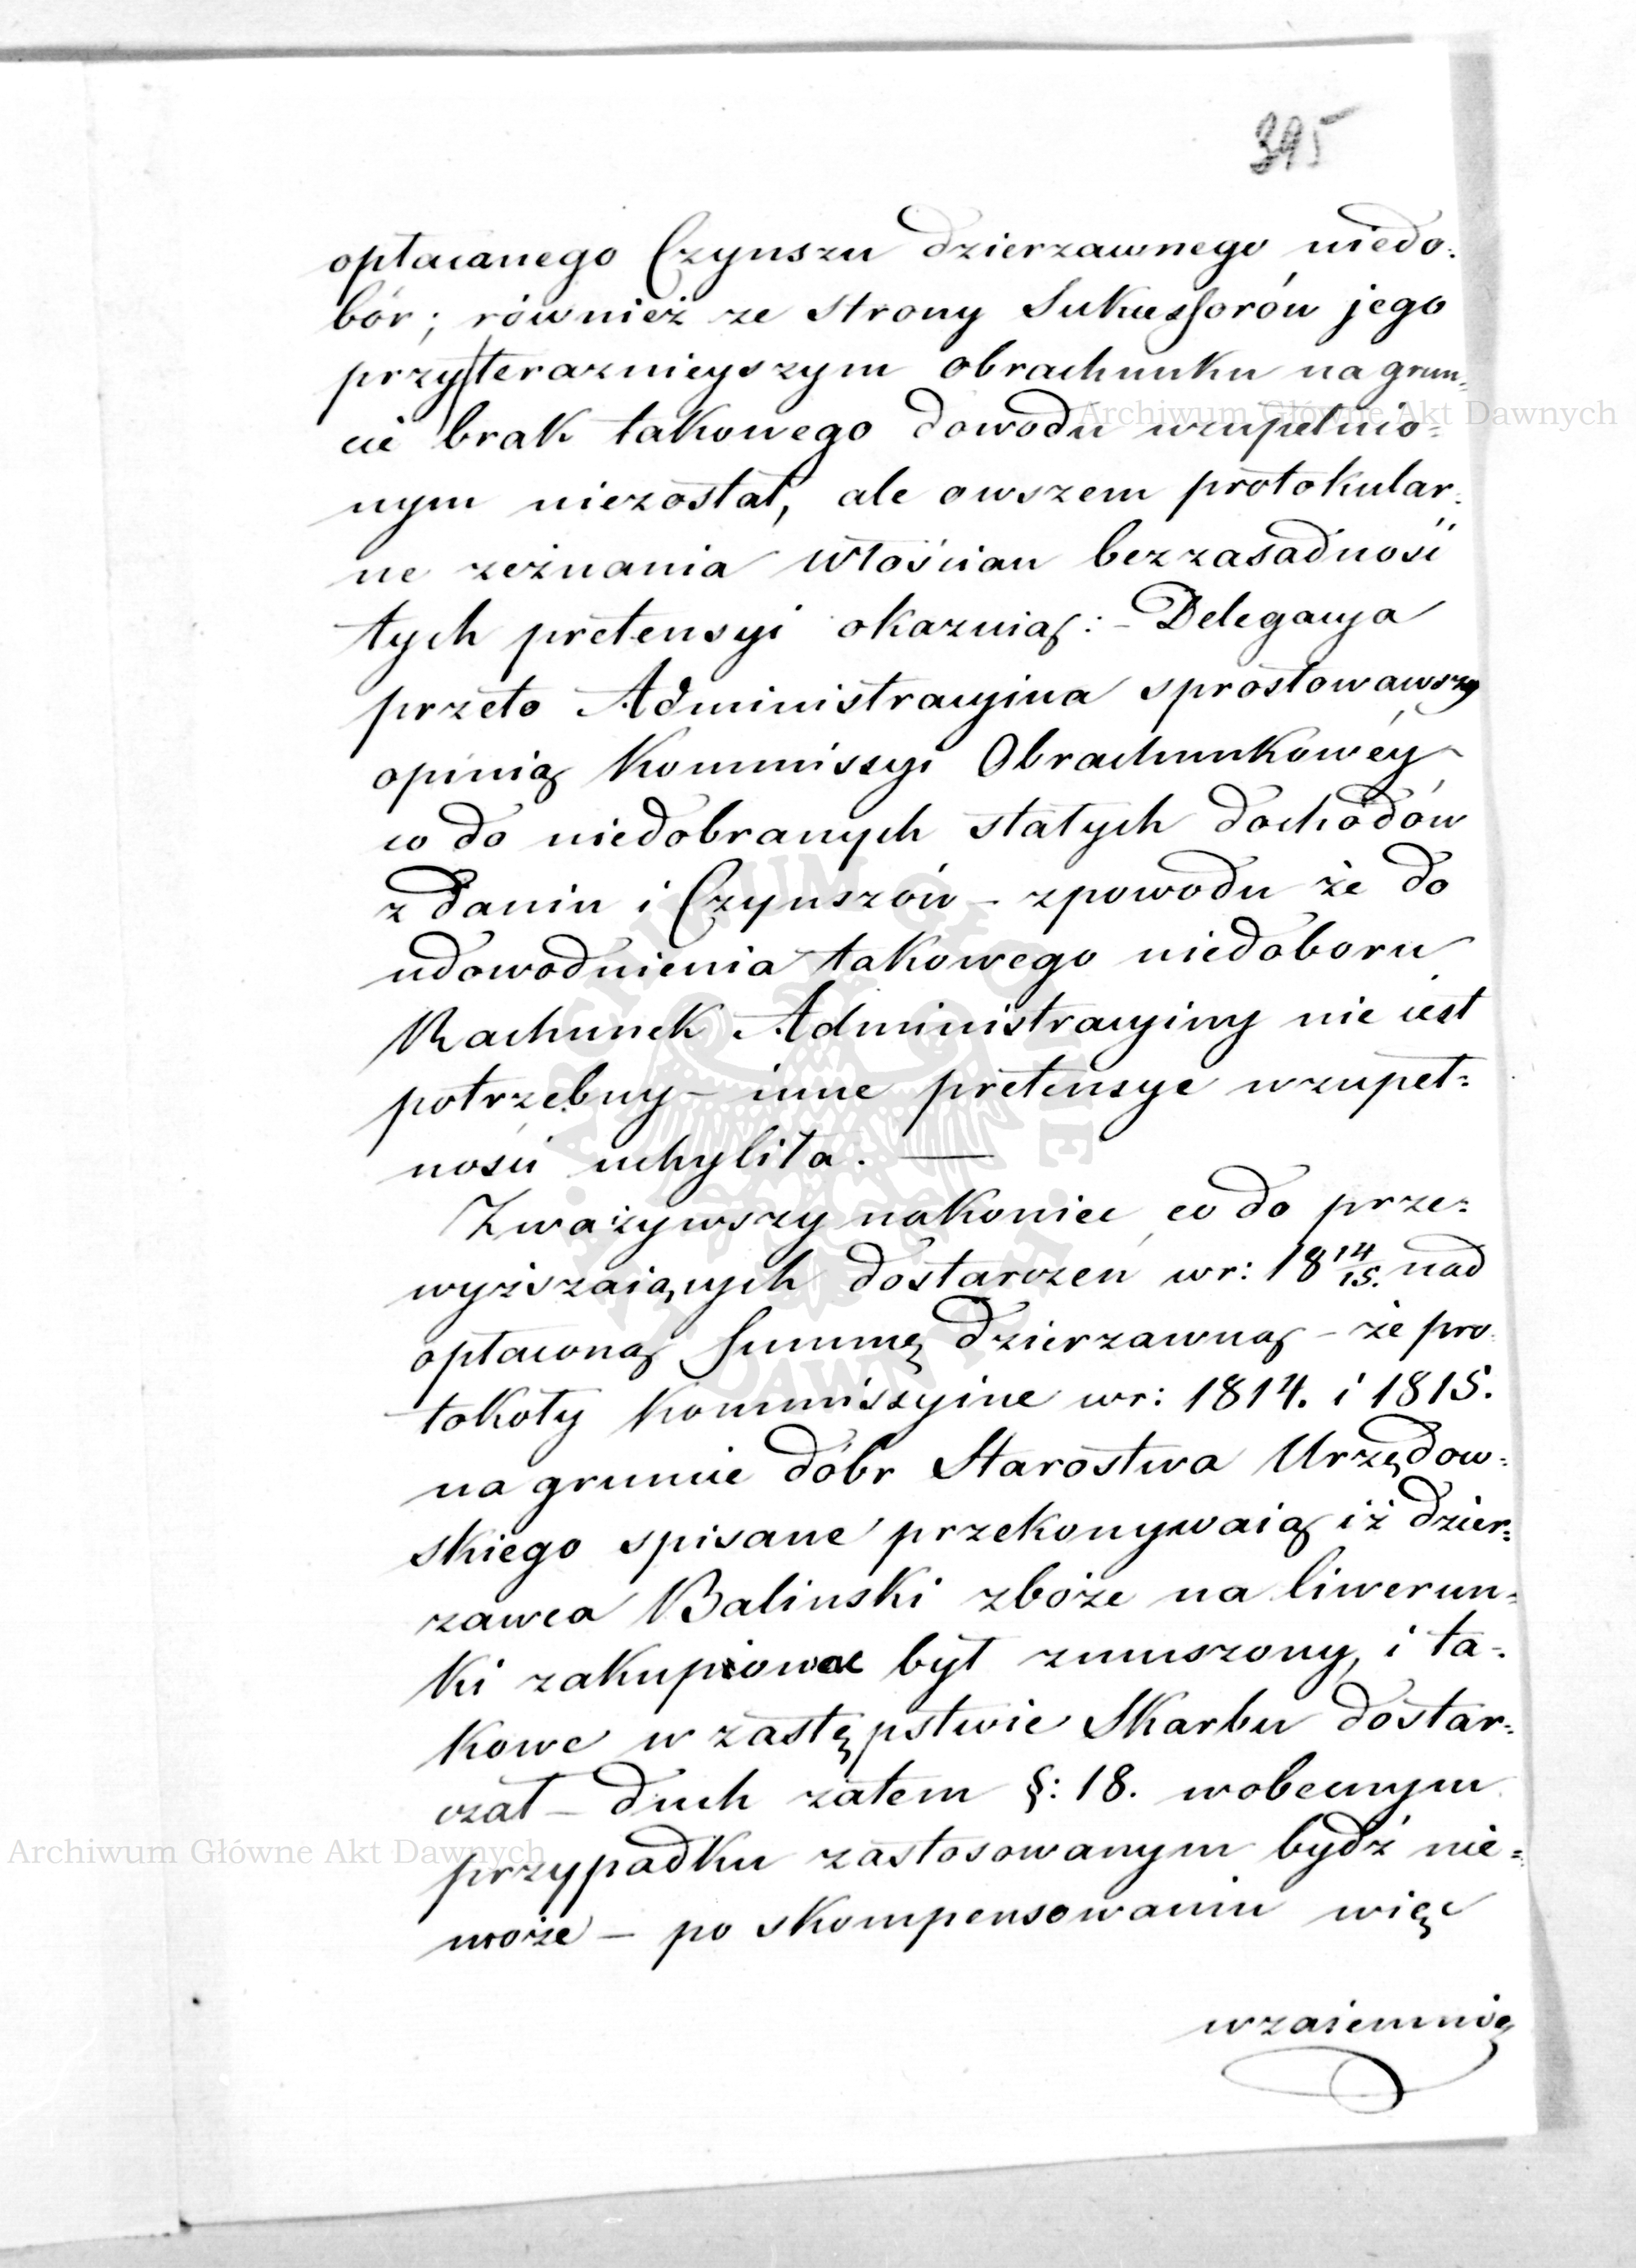 395
opłacanego Czynszu dzierzawnego niedo:
bór; również ze strony Sukcessorów jego
przy terazniejszym obrachunku na grun:
cie brak takowego dowodu wzupełnio:
nym niezostał, ale owszem protokular:
ne zeznania Włościan bezzasadność
tych pretensyi okazuią: – Delegacya
przeto Administracyina sprostowawszy
opinią Kommissyi Obrachunkowéy
co do niedobranych stałych dochodów
z danin i Czynszów – zpowodu że do
udowodnienia takowego niedoboru
Rachunek Administracyiny nie iest
potrzebny – inne pretensye wzupeł:
ności uchyliła. —
Zważywszy nakoniec co do prze:
wyższaiących dostarczeń wr: 18 14/15. nad
opłaconą Summę dzierzawną – że pro:
tokoły Kommissyine wr: 1814. i 1815.
na gruncie dóbr Starostwa Urzędow:
skiego spisane przekonywaią iż dzier:
zawca Baliński zboże na liwerun:
ki zakupiować był zmuszony, i ta:
kowe w zastępstwie Skarbu dostar:
czał – duch zatem §: 18. wobecnym
przypadku zastosowanym bydź nie:
może – po skompensowaniu więc
wzaiemnie
Archiwum Główne Akt Dawnych
Archiwum Główne Akt Dawnych
ARCHIWUM GŁÓWNE AKT DAWNYCH